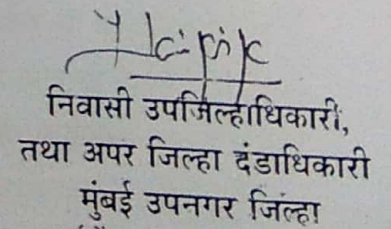 निवासी उपजिल्हाधिकारी,
तथा अपर जिल्हा दंडाधिकारी
मुंबई उपनगर जिल्हा